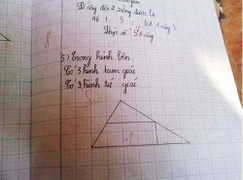 Số cây đội 2 trồng được là
46 + 5 = 51 (cây)
Đáp số: 51 cây
8
5) Trong hình bên
Có 3 hình tam giác
Có 3 hình tứ giác
1